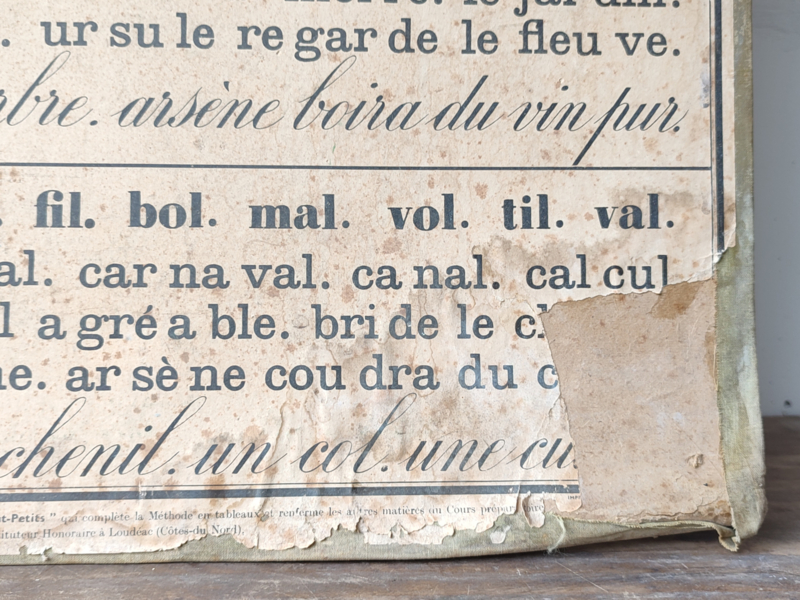 ur su le re gar de le fleu ve.
arsène boira du vin pur.
fil. bol. mal. vol. til. val.
al. car na val. ca nal. cal cul
a gré a ble. bri de le
ar sè ne cou dra du
chenil. un col. une
t-Petits " qui complète la Méthode en tableaux et renferme les autres matières du Cours
tituteur Honoraire à Loudéac (Côtes-du-Nord).